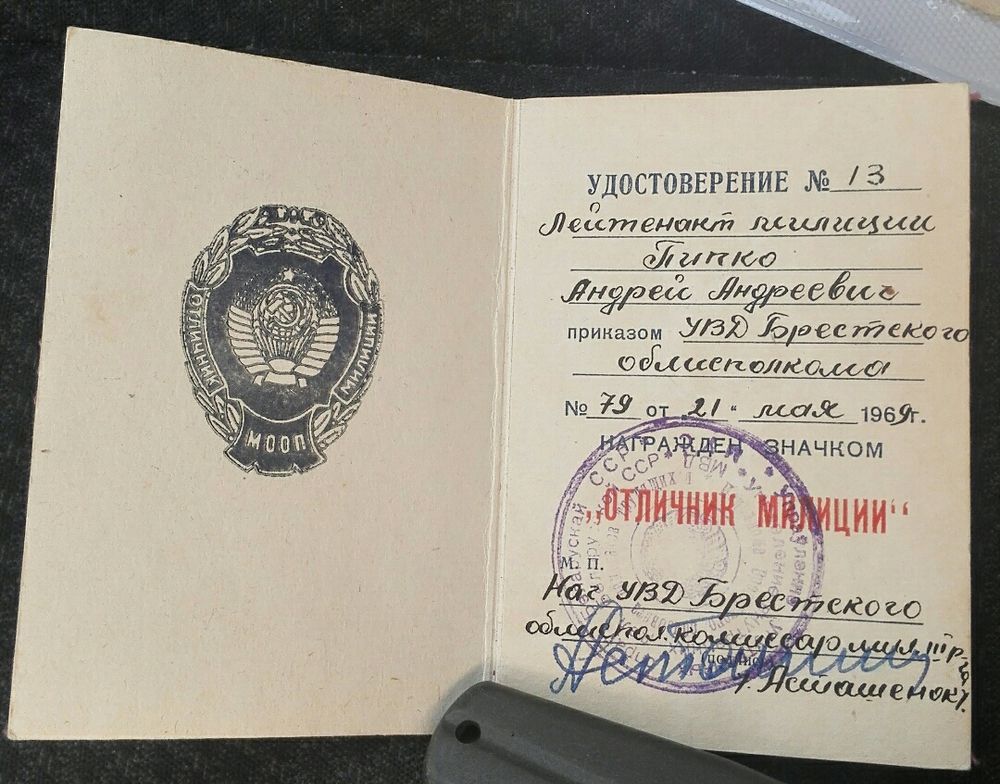 ОТЛИЧНИК
МИЛИЦИИ
МООП
УДОСТОВЕРЕНИЕ № 13
Лейтенант милиции
Пипко
Андрей Андреевич
приказом УВД Брестского
облисполкома
№ 79 от „21" мая 1969г.
НАГРАЖДЕН ЗНАЧКОМ
„ОТЛИЧНИК МИЛИЦИИ"
М. П.
Нач УВД Брестского
облиспол. комиссар мил. 3 р-га
(подпись)
Асташенок